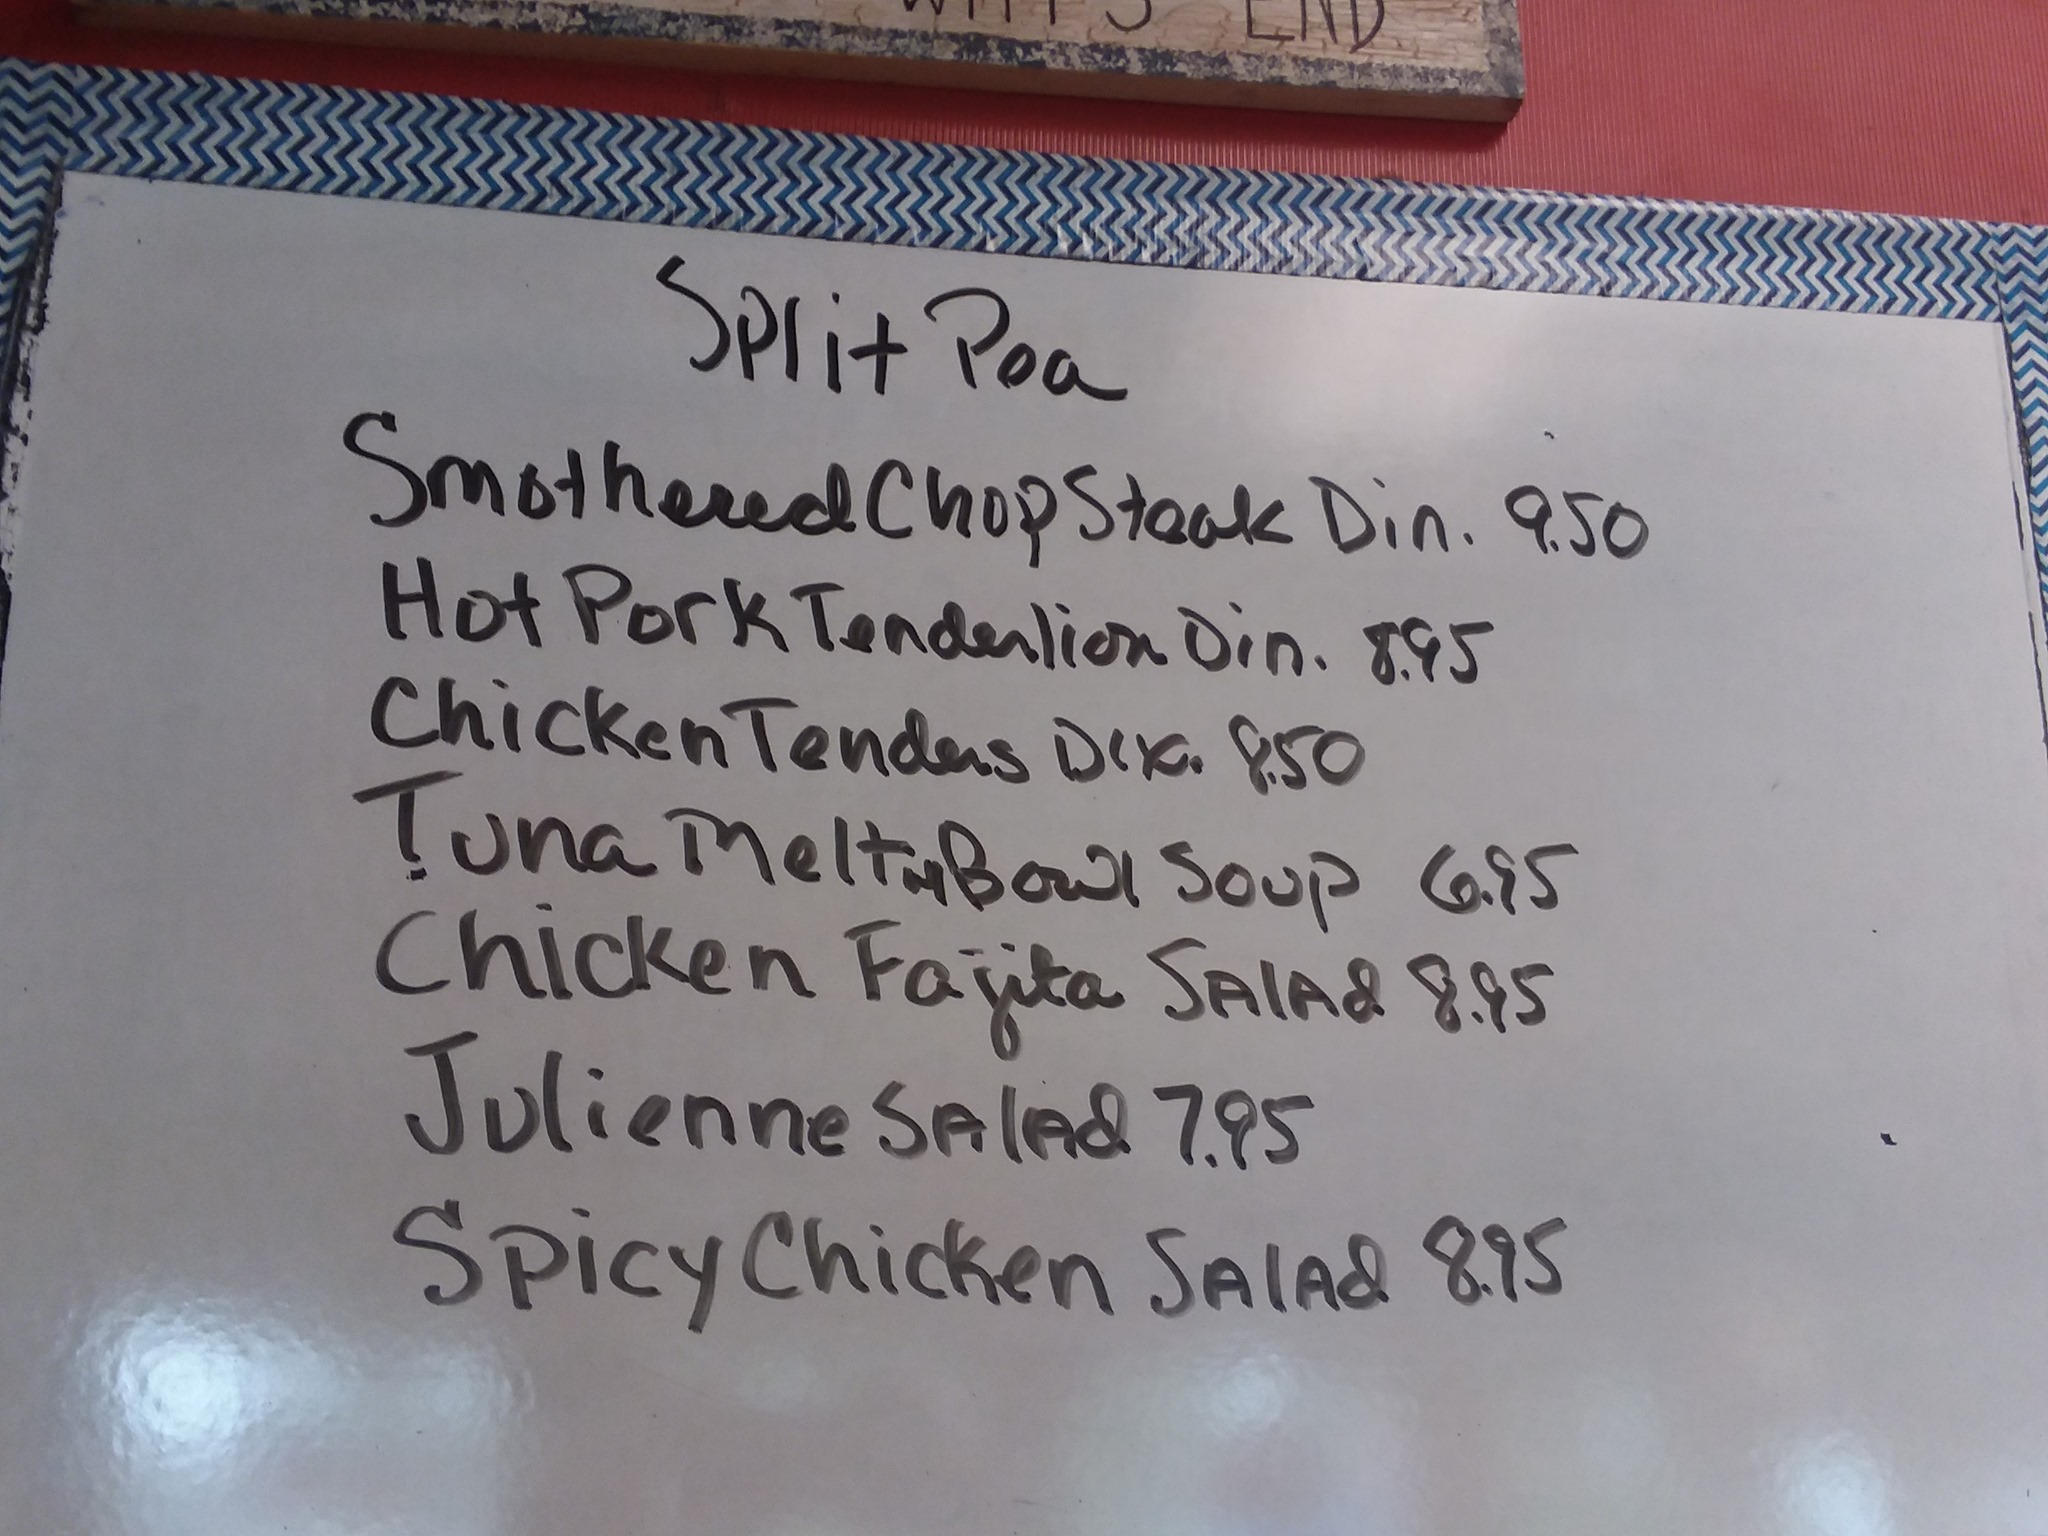 WIT'S END
Split Pea
Smothered Chop Steak Din. 9.50
Hot Pork Tenderlion Din. 8.95
Chicken Tenders Din. 8.50
Tuna Melt n Bowl Soup 6.95
Chicken Fajita Salad 8.95
Julienne Salad 7.95
Spicy Chicken Salad 8.95